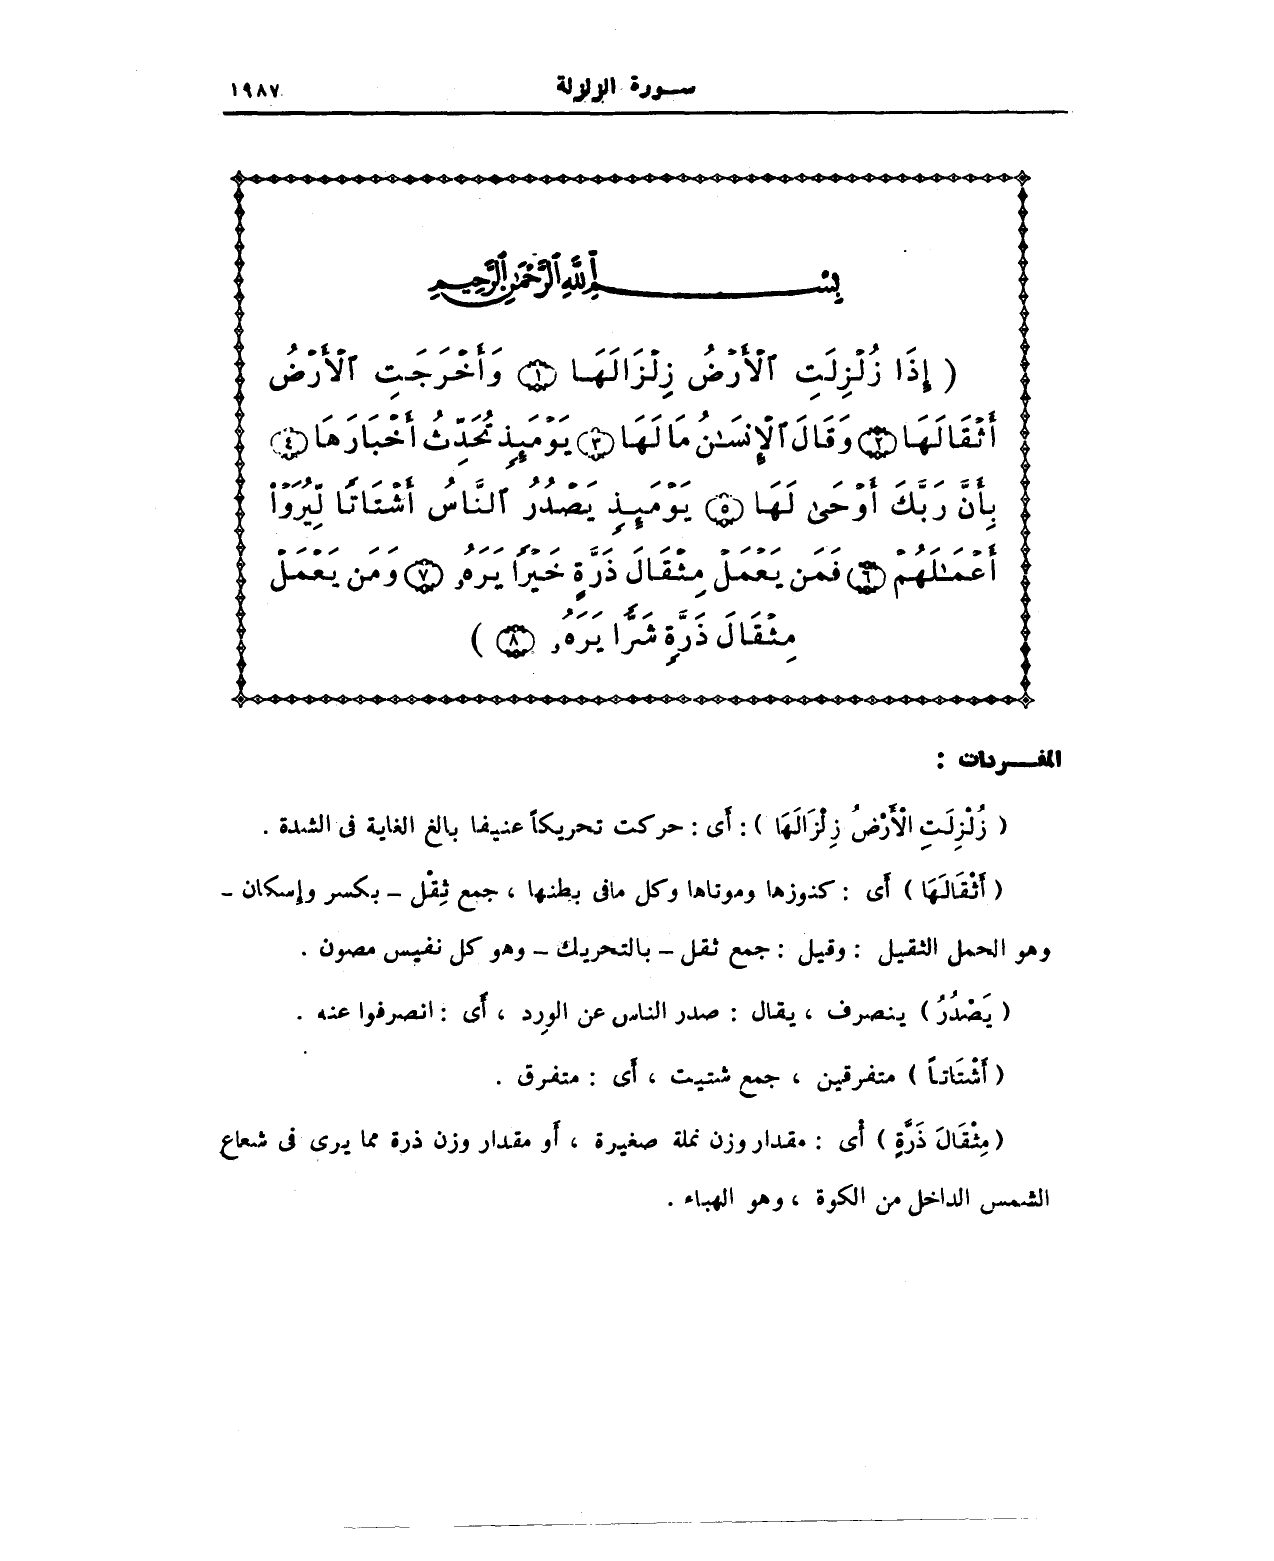 سورة الزلزلة ١٩٨٧
بِسْمِ ٱللَّهِ ٱلرَّحْمَٰنِ ٱلرَّحِيمِ
( إِذَا زُلْزِلَتِ ٱلْأَرْضُ زِلْزَالَهَا ١ وَأَخْرَجَتِ ٱلْأَرْضُ
أَثْقَالَهَا ٢ وَقَالَ ٱلْإِنسَٰنُ مَا لَهَا ٣ يَوْمَئِذٍ تُحَدِّثُ أَخْبَارَهَا ٤
بِأَنَّ رَبَّكَ أَوْحَىٰ لَهَا ٥ يَوْمَئِذٍ يَصْدُرُ ٱلنَّاسُ أَشْتَاتًا لِّيُرَوْا۟
أَعْمَٰلَهُمْ ٦ فَمَن يَعْمَلْ مِثْقَالَ ذَرَّةٍ خَيْرًا يَرَهُۥ ٧ وَمَن يَعْمَلْ
مِثْقَالَ ذَرَّةٍ شَرًّا يَرَهُۥ ٨ )
المفـــردات :
( زُلْزِلَتِ الْأَرْضُ زِلْزَالَهَا ) : أى : حركت تحريكاً عنيفا بالغ الغاية فى الشدة .
( أَثْقَالَهَا ) أى : كنوزها وموتاها وكل مافى بطنها ، جمع ثِقْل – بكسر وإسكان –
وهو الحمل الثقيل : وقيل : جمع ثقل – بالتحريك – وهو كل نفيس مصون .
( يَصْدُرُ ) ينصرف ، يقال : صدر الناس عن الورِد ، أى : انصرفوا عنه .
( أَشْتَاتاً ) متفرقين ، جمع شتيت ، أى : متفرق .
( مِثْقَالَ ذَرَّةٍ ) أى : مقدار وزن نملة صغيرة ، أو مقدار وزن ذرة مما يرى فى شعاع
الشمس الداخل من الكوة ، وهو الهباء .